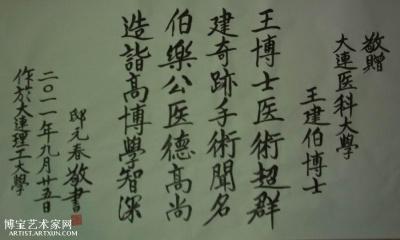 敬贈
大連医科大學
王建伯博士
王博士医術超群
建奇跡手術聞名
伯樂公医德高尚
造詣高博學智深
邸元春敬書
二〇一一年九月廿五日
作於大連理工大學
博宝艺术家网
ARTIST.ARTXUN.COM